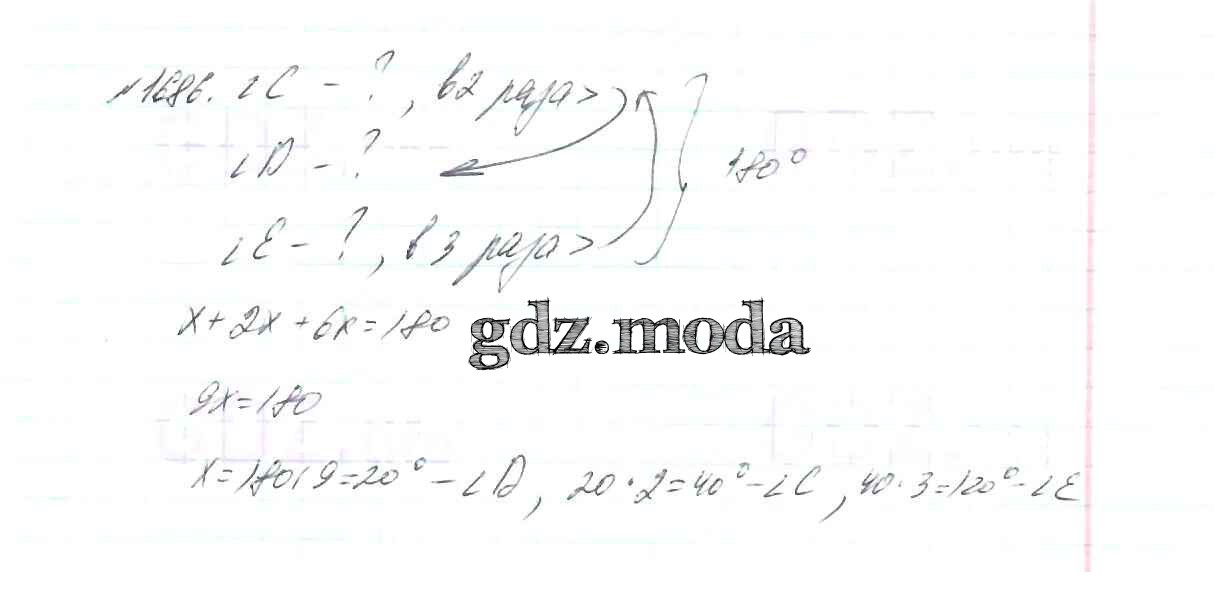 №1686. ∠C - ?, в 2 раза >
∠D - ?
180°
∠E - ?, в 3 раза >
x + 2x + 6x = 180
gdz.moda
9x = 180
x = 180 : 9 = 20° - ∠D, 20 · 2 = 40° - ∠C, 40 · 3 = 120° - ∠E